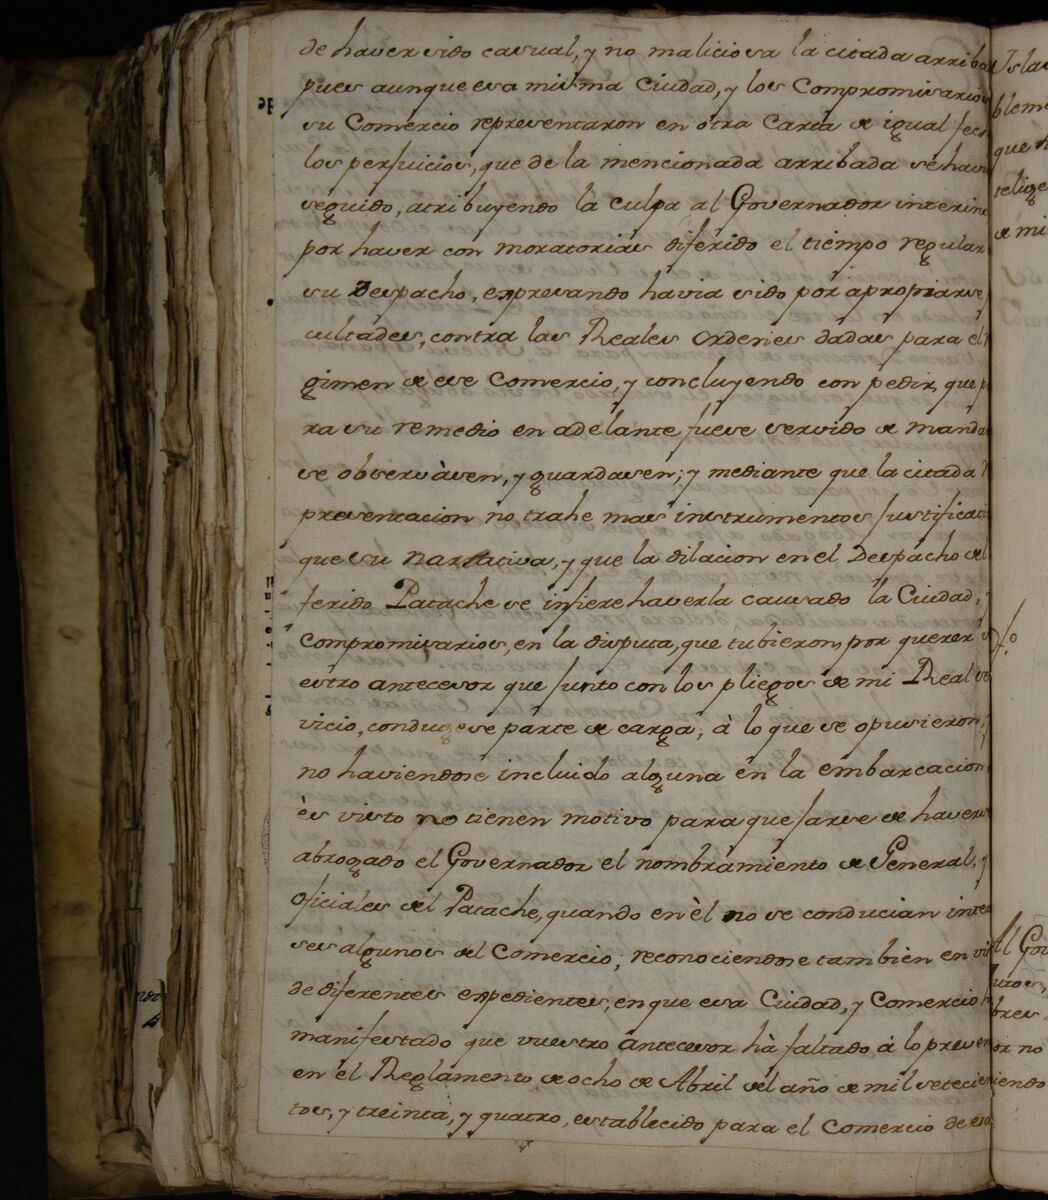 de haver sido casual, y no maliciosa la citada arriba
pues aunque esa misma Ciudad, y los Compromisarios
su Comercio representaron en otra Carta de igual fec
los perjuicios, que de la mencionada arribada se havi
seguido, atribuyendo la culpa al Governador interin
por haver con moratorias diferido el tiempo regular
su Despacho, expresando havia sido por apropiarse
cultades, contra las Reales ordenes dadas para el
gimen de ese Comercio, y concluyendo con pedir, que p
ra su remedio en adelante fuese servido de manda
se observàsen, y guardasen; y mediante que la citada
presentacion no trahe mas instrumentos justificati
que su narrativa, y que la dilacion en el Despacho del
ferido Patache se infiere haverla causado la Ciudad,
Compromisarios, en la disputa, que tubieron, por querer
estro antecesor que junto con los pliegos de mi Real se
vicio, condugese parte de carga, à lo que se opusieron,
no haviendose incluido alguna en la embarcacion,
ès visto no tienen motivo para quejarse de havers
abrogado el Governador el nombramiento de General, y
oficiales del Patache, quando en èl no se conducian inte
ses algunos del Comercio; reconociendose tambien en vis
de diferentes expedientes, en que esa Ciudad, y Comercio
manifestado que vuestro antecesor hà faltado á lo preven
en el Reglamento de ocho de Abril del año de mil setecien
tos, y treinta, y quatro, establecido para el Comercio de esa
Islas
bleme
que
telige
de mi
Al Gov
bres
or no
iendo